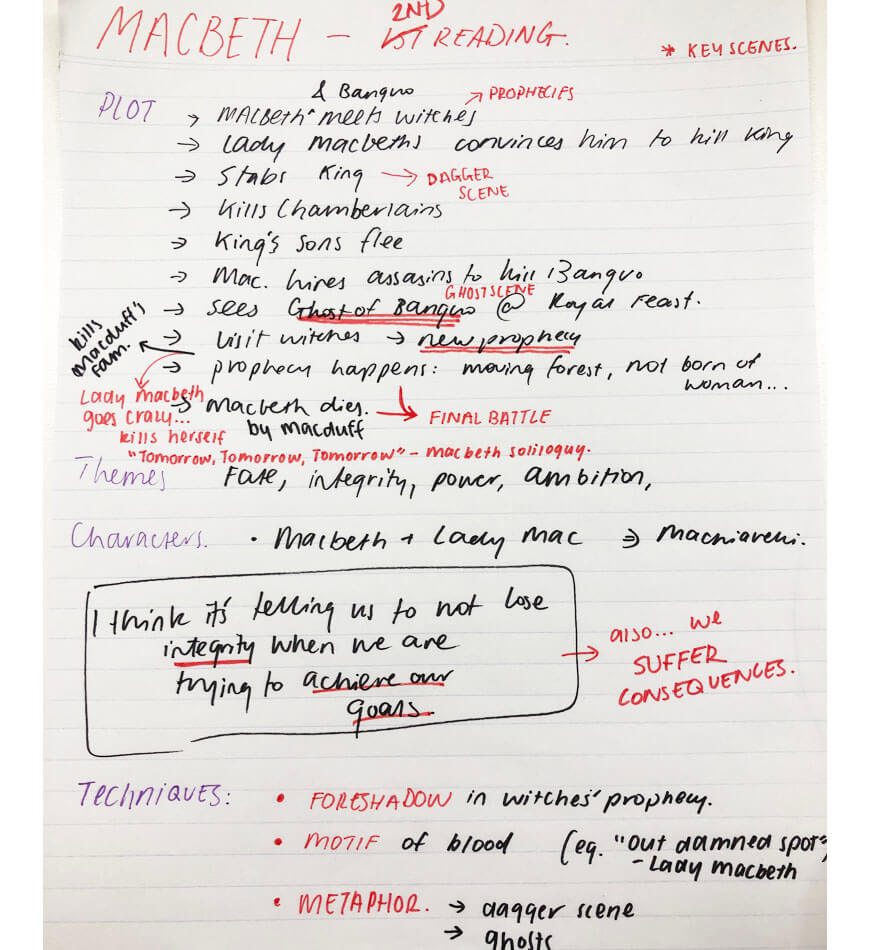 MACBETH – 1ST 2ND READING.
* KEY SCENES.
PLOT
& Banquo
→ PROPHECIES
→ Macbeth meets witches
→ Lady Macbeths convinces him to kill King
→ Stabs King → DAGGER SCENE
→ Kills Chamberlains
→ King's sons flee
→ Mac. hires assasins to kill Banquo
GHOST SCENE
→ sees Ghost of Banquo @ Royal Feast.
→ Visit witches → new prophecy
kills macduff's fam.
→ prophecy happens: moving forest, not born of woman...
Lady Macbeth goes crazy... kills herself
→ Macbeth dies. by macduff
→ FINAL BATTLE
"Tomorrow, Tomorrow, Tomorrow" – macbeth soliloquy.
Themes Fate, integrity, power, ambition,
Characters. • Macbeth + Lady Mac ⇒ Machiavelli.
I think it's telling us to not lose
integrity when we are
trying to achieve our
goals.
→ also... we
SUFFER
CONSEQUENCES.
Techniques: • FORESHADOW in witches' prophecy.
• MOTIF of blood (eg. "Out damned spot"
– Lady macbeth
• METAPHOR. → dagger scene
→ ghosts